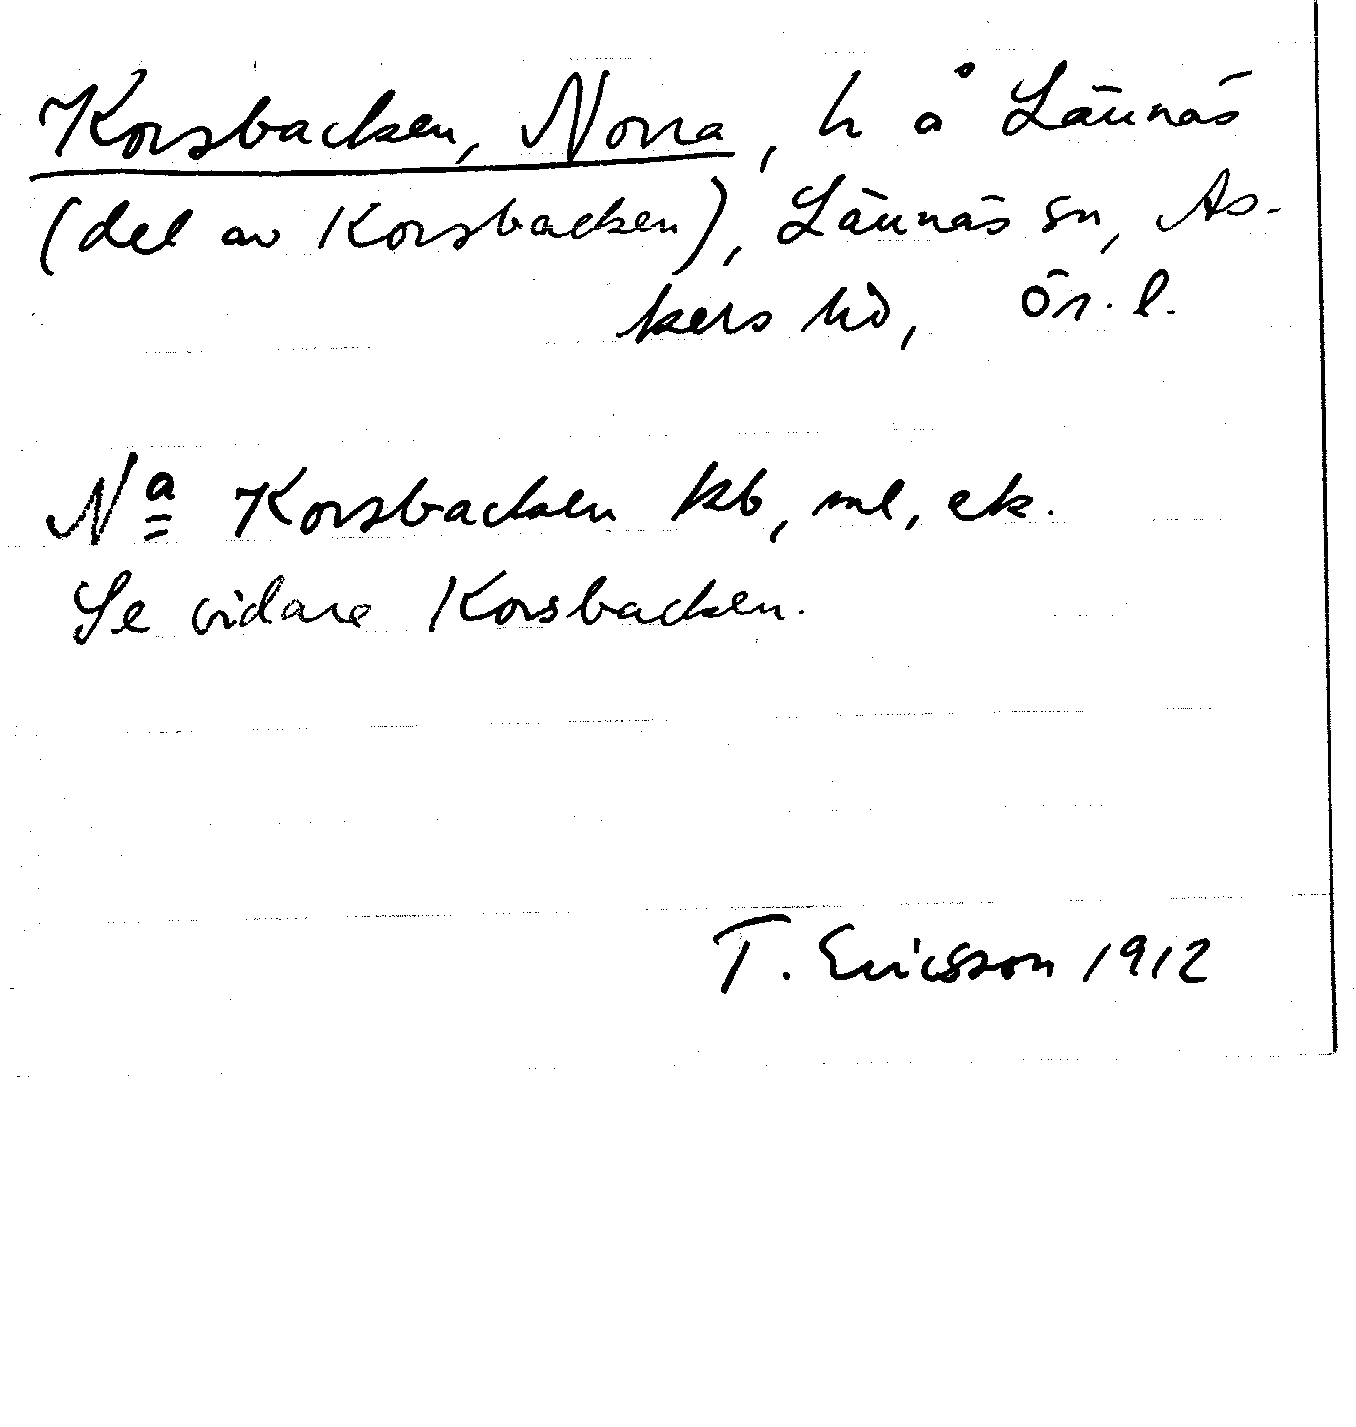 Korsbacken, Norra, h å Lännäs
(del av Korsbacken), Lännäs sn, As-
kers hd, Ör. l.
Nª Korsbacken kb, ml, ek.
Se vidare Korsbacken.
T. Ericsson 1912